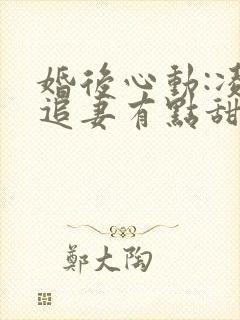 婚後心動:凌
追妻有點甜
鄭大陶